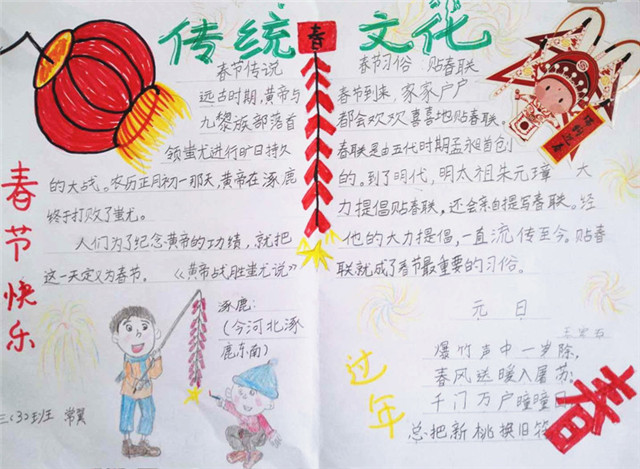 传统 春 文化
春节传说
远古时期,黄帝与
九黎族部落首
领蚩尤进行旷日持久
的大战。农历正月初一那天,黄帝在涿鹿
终于打败了蚩尤。
人们为了纪念黄帝的功绩,就把
这一天定义为春节。《黄帝战胜蚩尤说》
涿鹿:
(今河北涿
鹿东南)
春节快乐
三(3)班 常翼
春节习俗 贴春联
春节到来,家家户户
都会欢欢喜喜地贴春联。
春联是由五代时期孟永旭首创
的。到了明代,明太祖朱元璋大
力提倡贴春联,还会亲自提写春联。经
他的大力提倡,一直流传至今。贴春
联就成了春节最重要的习俗。
元日
爆竹声中一岁除,
春风送暖入屠苏,
千门万户曈曈日
总把新桃换旧符
过年
春